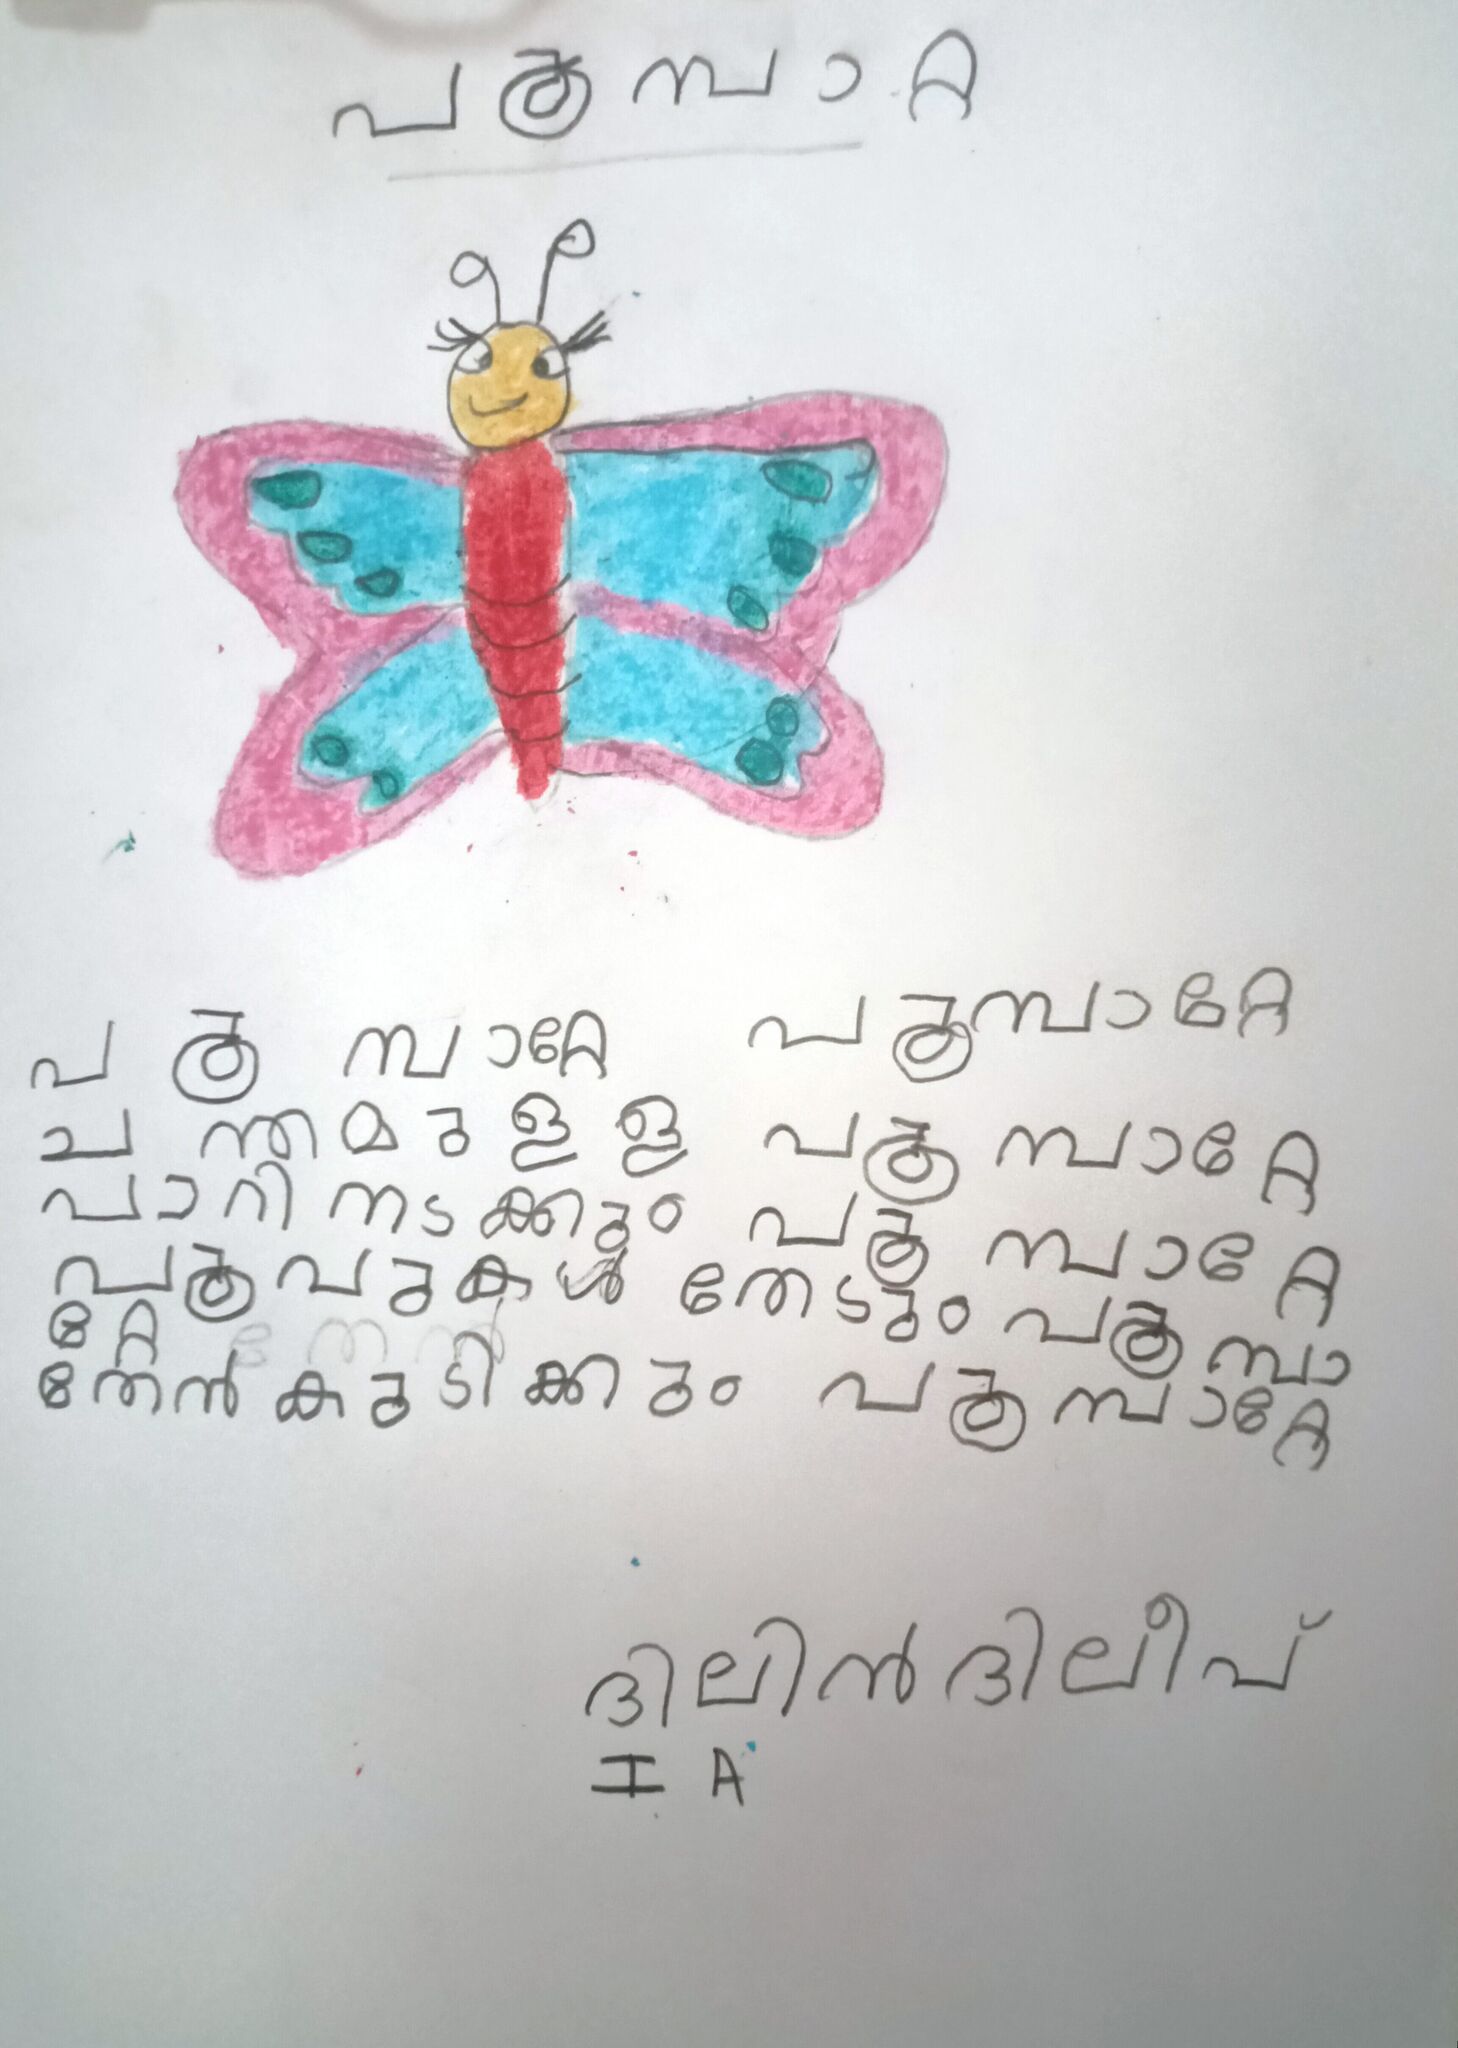 പൂമ്പാറ്റ
പൂമ്പാറ്റേ പൂമ്പാറ്റേ
ചന്തമുള്ള പൂമ്പാറ്റേ
പാറിനടക്കും പൂമ്പാറ്റേ
പൂവുകൾ തേടും പൂമ്പാ
റ്റേ
തേൻകുടിക്കും പൂമ്പാറ്റേ
ദിലിൻ ദിലീപ്
I A